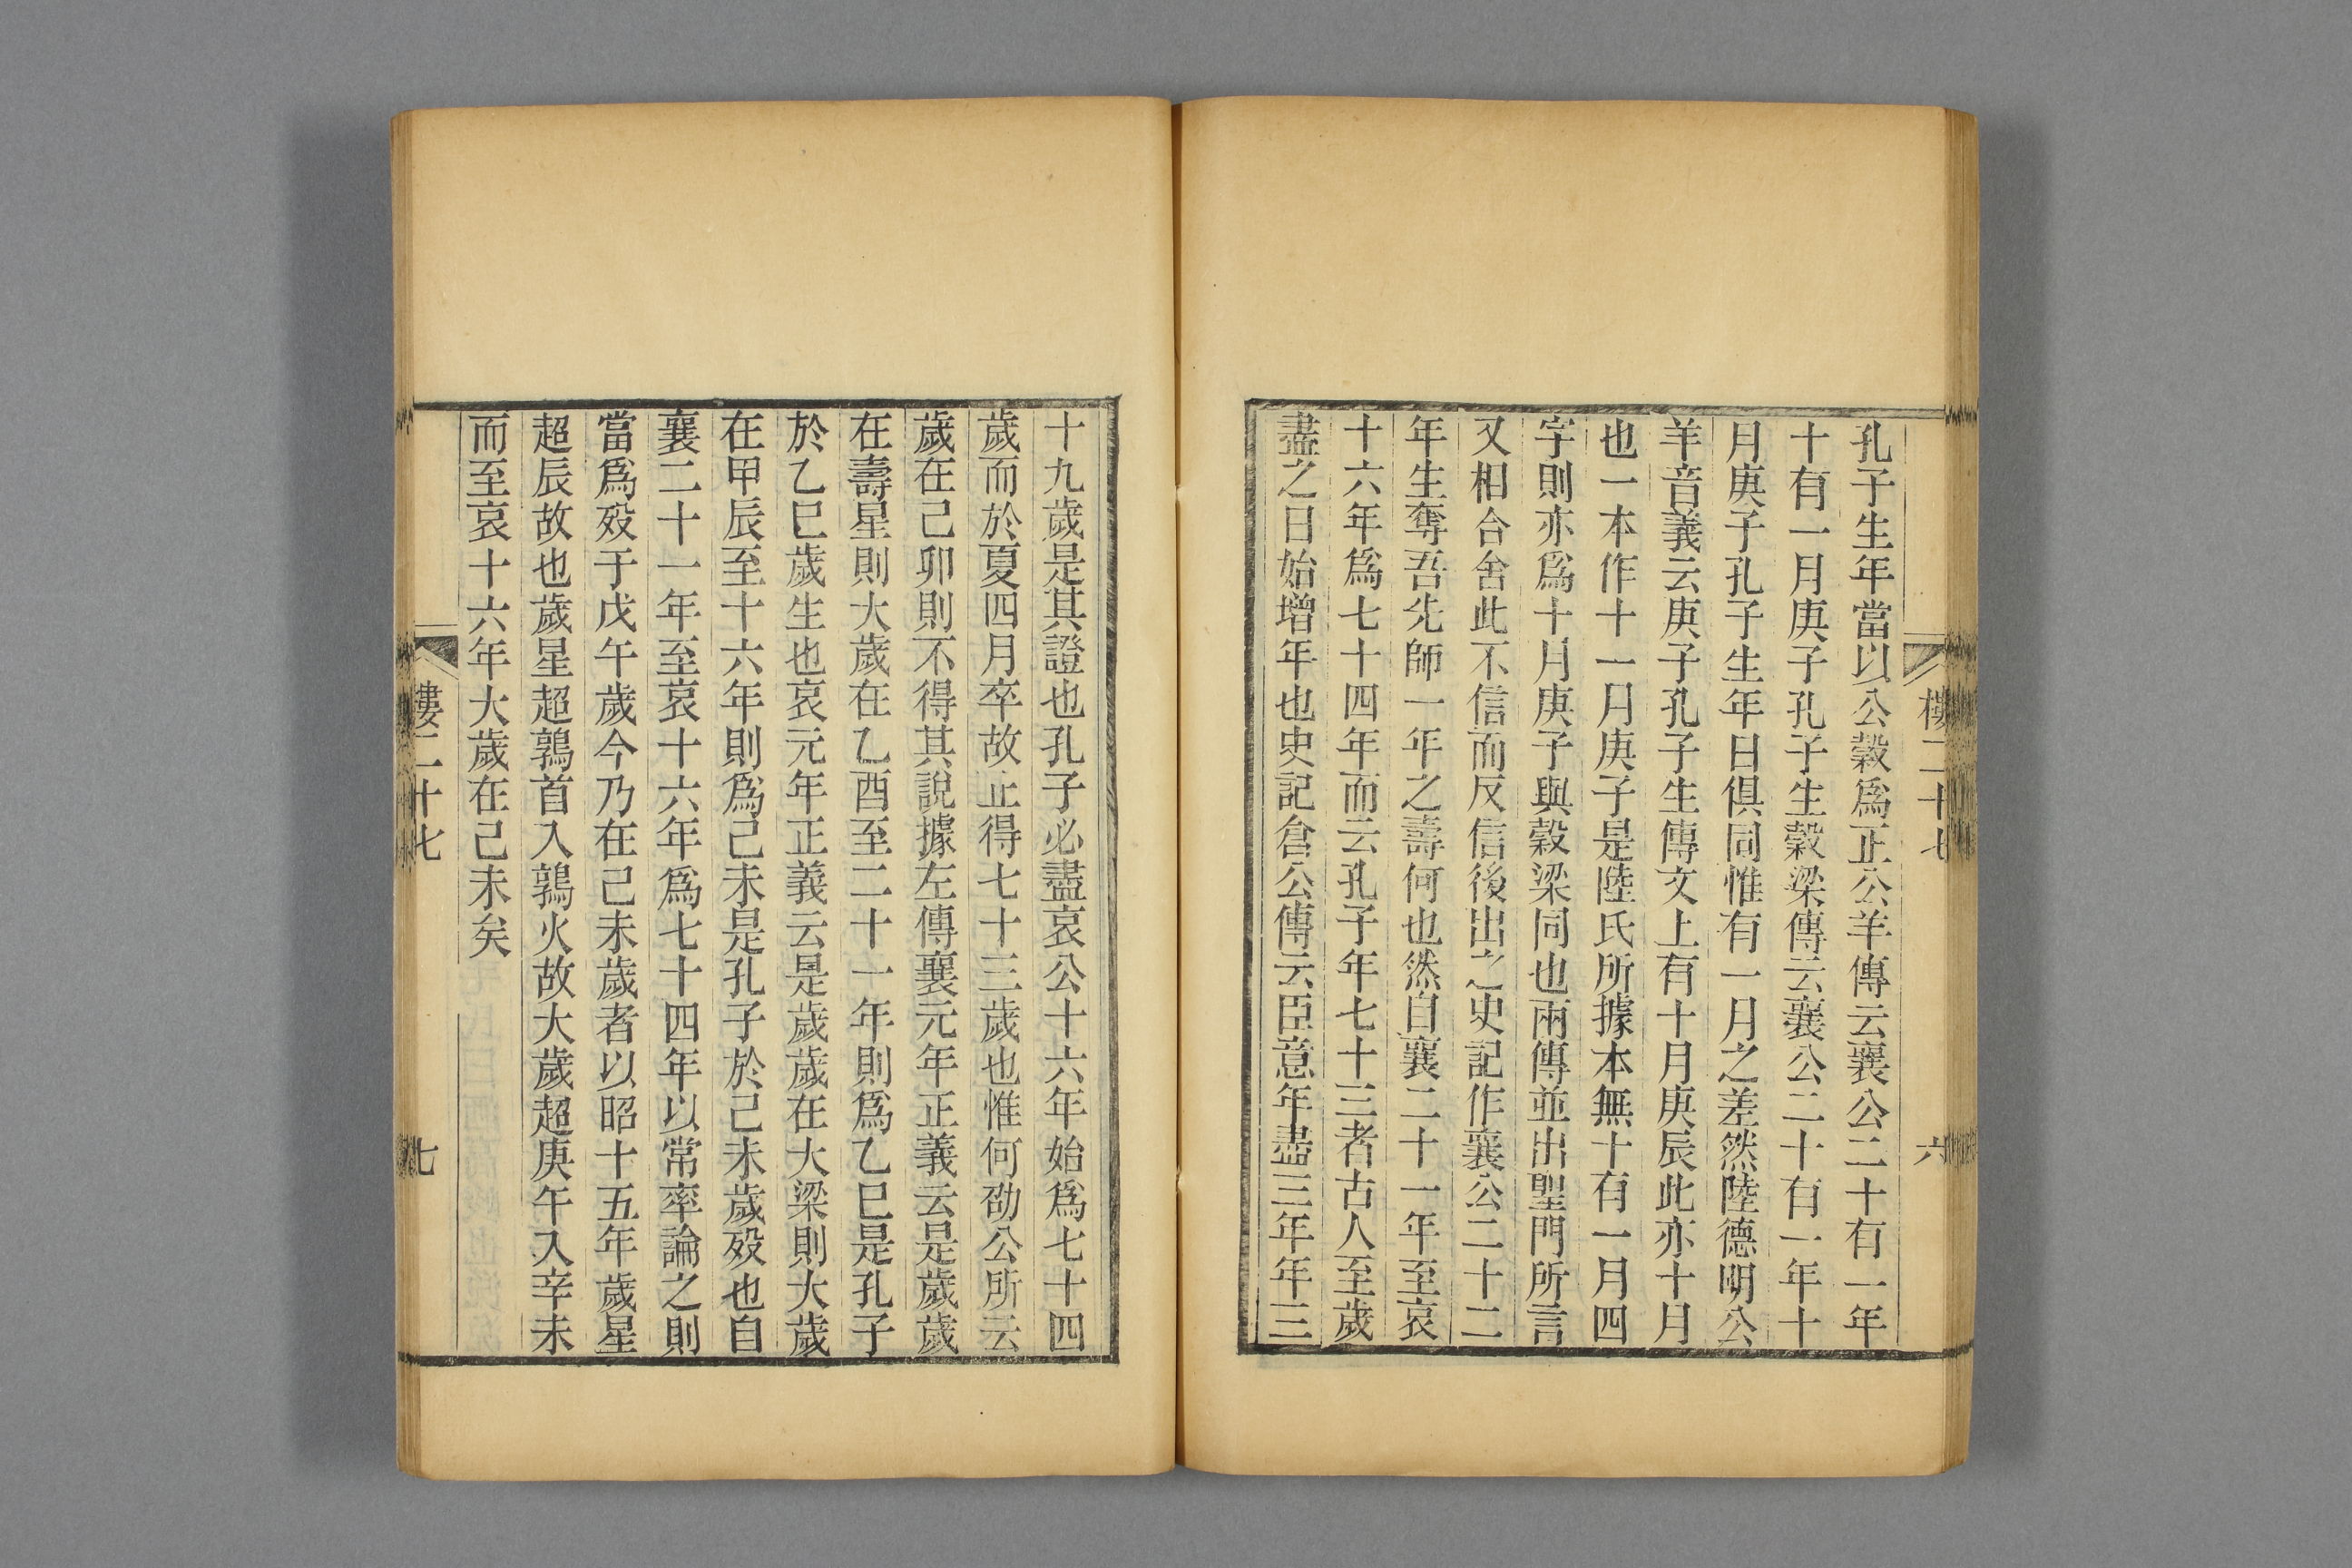 樓二十七
六
孔子生年當以公榖爲正公羊傳云襄公二十有一年
十有一月庚子孔子生榖梁傳云襄公二十有一年十
月庚子孔子生年日俱同惟有一月之差然陸德明公
羊音義云庚子孔子生傳文上有十月庚辰此亦十月
也一本作十一月庚子是陸氏所據本無十有一月四
字則亦爲十月庚子與榖梁同也兩傳並出聖門所言
又相合舍此不信而反信後出之史記作襄公二十二
年生奪吾先師一年之壽何也然自襄二十一年至哀
十六年爲七十四年而云孔子年七十三者古人至歲
盡之日始增年也史記倉公傳云臣意年盡三年年三
十九歲是其證也孔子必盡哀公十六年始爲七十四
歲而於夏四月卒故止得七十三歲也惟何劭公所云
歲在己卯則不得其說據左傳襄元年正義云是歲歲
在壽星則大歲在乙酉至二十一年則爲乙巳是孔子
於乙巳歲生也哀元年正義云是歲歲在大梁則大歲
在甲辰至十六年則爲己未是孔子於己未歲歿也自
襄二十一年至哀十六年爲七十四年以常率論之則
當爲歿于戊午歲今乃在己未歲者以昭十五年歲星
超辰故也歲星超鶉首入鶉火故大歲超庚午入辛未
而至哀十六年大歲在己未矣
樓二十七
七